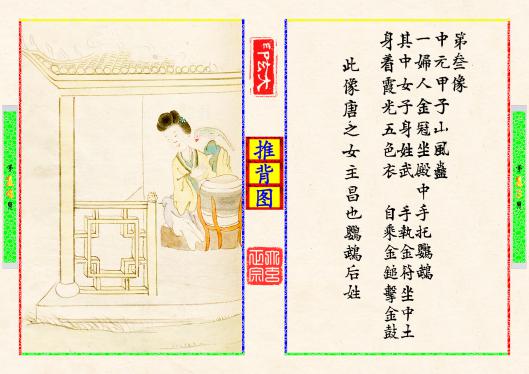 第叁像
中元甲子山風蠱
一婦人金冠坐殿中手托鸚鵡
其中女子身姓武　手執金符坐中土
身着霞光五色衣　自乘金鎚擊金鼓
此像唐之女主昌也鸚鵡后姓
推背图